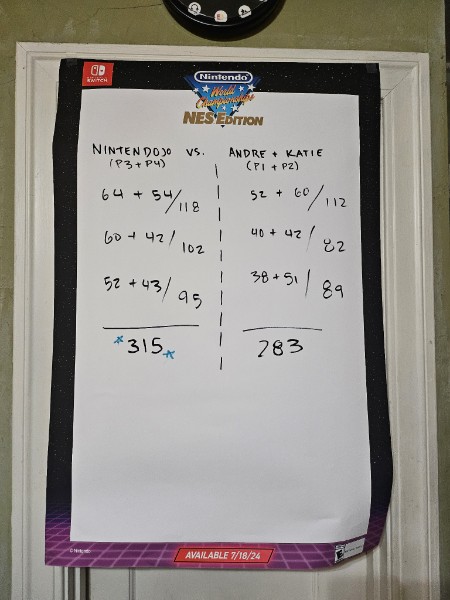 NINTENDO
SWITCH
Nintendo
World
Championships
NES EDITION
NINTENDOJO VS. ANDRE + KATIE
(P3 + P4) (P1 + P2)
64 + 54/118 52 + 60/112
60 + 42/102 40 + 42/82
52 + 43/95 38 + 51/89
315 283
© Nintendo
AVAILABLE 7/18/24
E